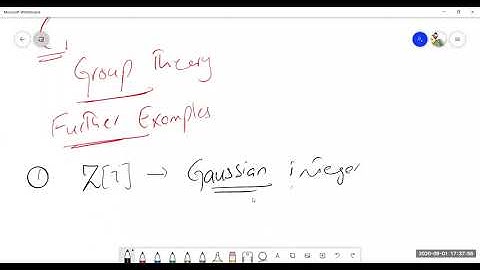 Microsoft Whiteboard
Group Theory
Further Examples
① Z[i] → Gaussian integer
2020-09-01 17:37:56